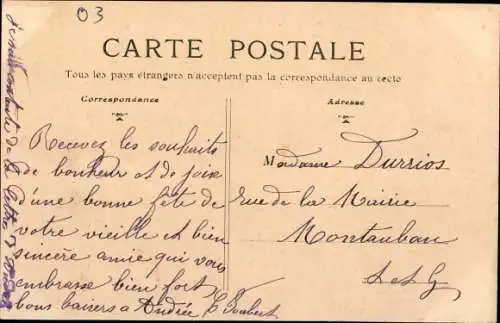 03
CARTE POSTALE
Tous les pays étrangers n'acceptent pas la correspondance au recto
Correspondance
Recevez les souhaits
de bonheur et de joie
d'une bonne fête de
votre vieille et bien
sincère amie qui vous
embrasse bien fort
bons baisers à Andrée E Joubert
Adresse
Madame Durrios
rue de la Mairie
Montauban
T et G